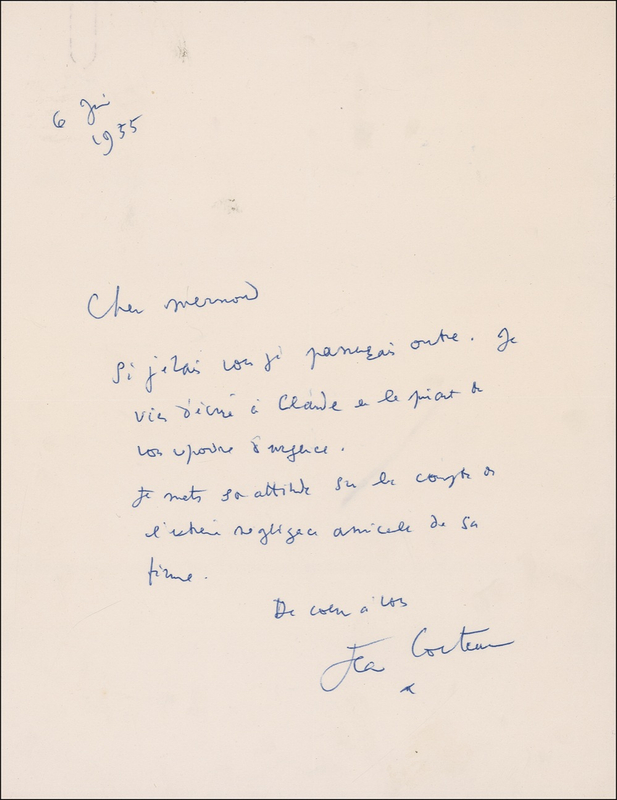 6 Juin
1955
Cher Mermod
Si j'étais vous je passerais outre. Je
viens d'écrire à Claude en le priant de
vous répondre d'urgence.
Je mets son attitude sur le compte de
l'extrême négligence amicale de sa
firme.
De cœur à vous
Jean Cocteau